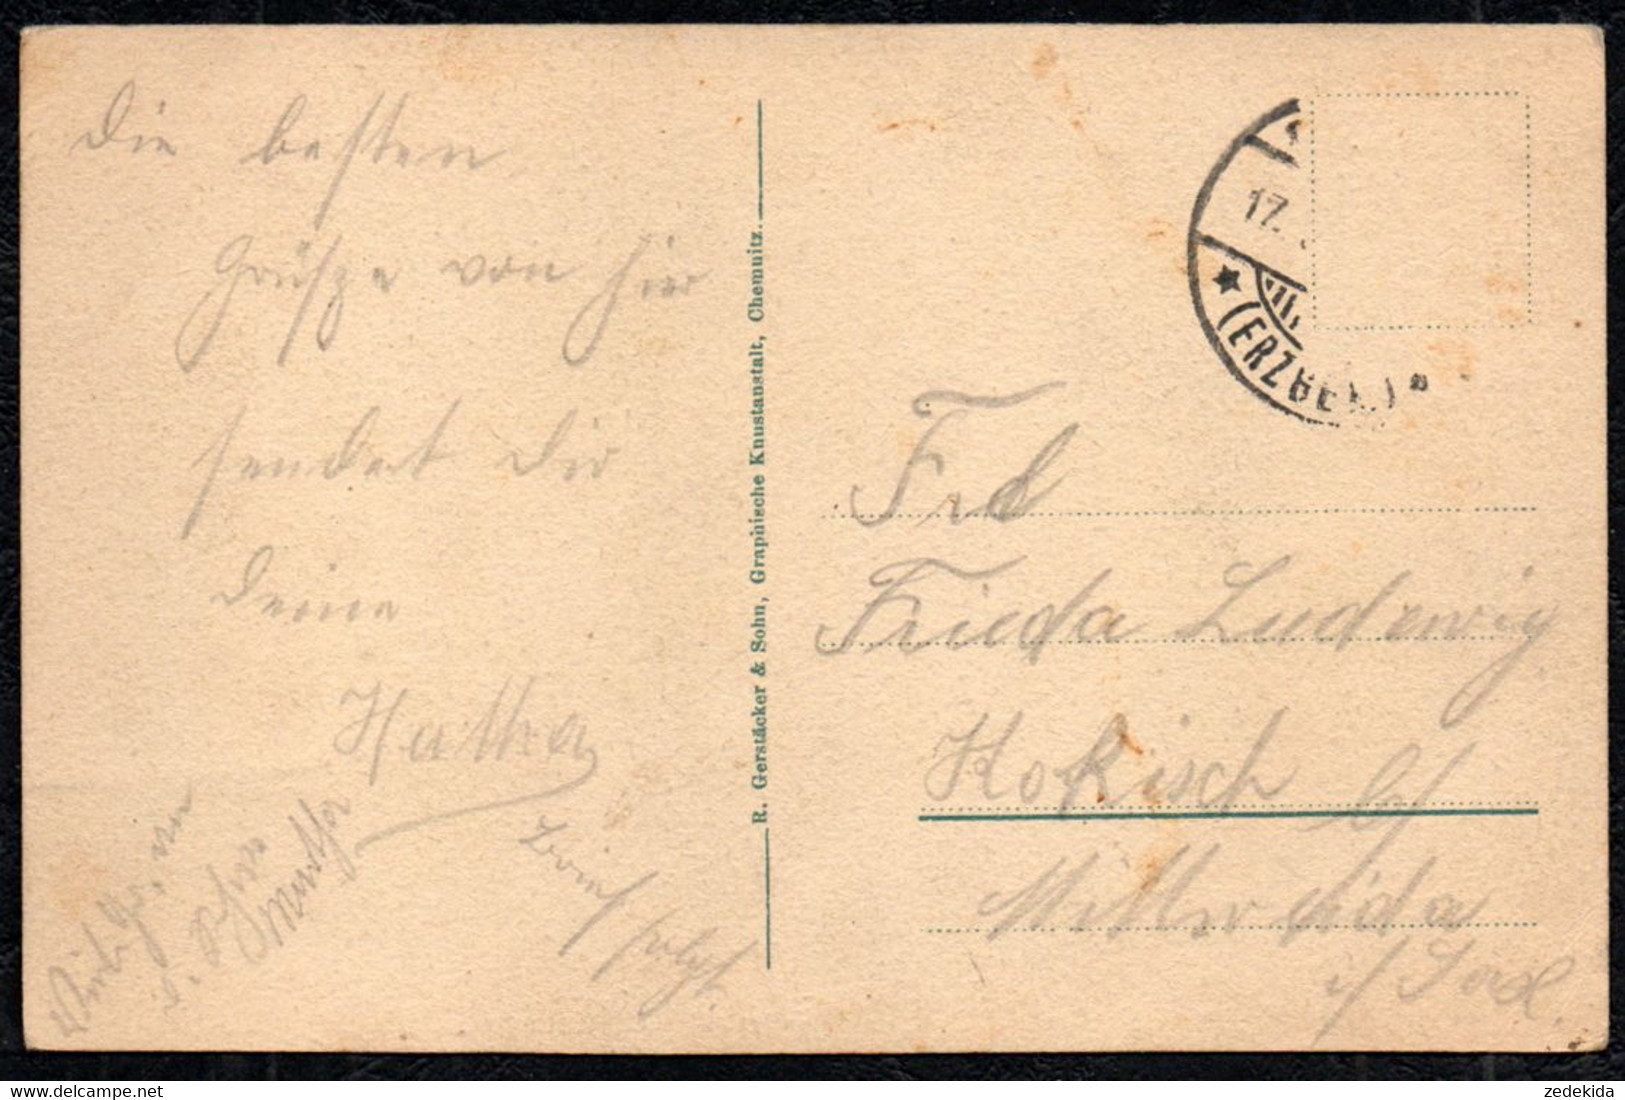 Die besten
Grüsze von hier
sendet Dir
Deine
Brief folgt.
R. Gerstäcker & Sohn, Graphische Knustanstalt, Chemnitz.
17.
(ERZGEB.) *
Frl
Frieda Ludewig
Kokisch b/
Mittweida
i/ Sa
zedekida